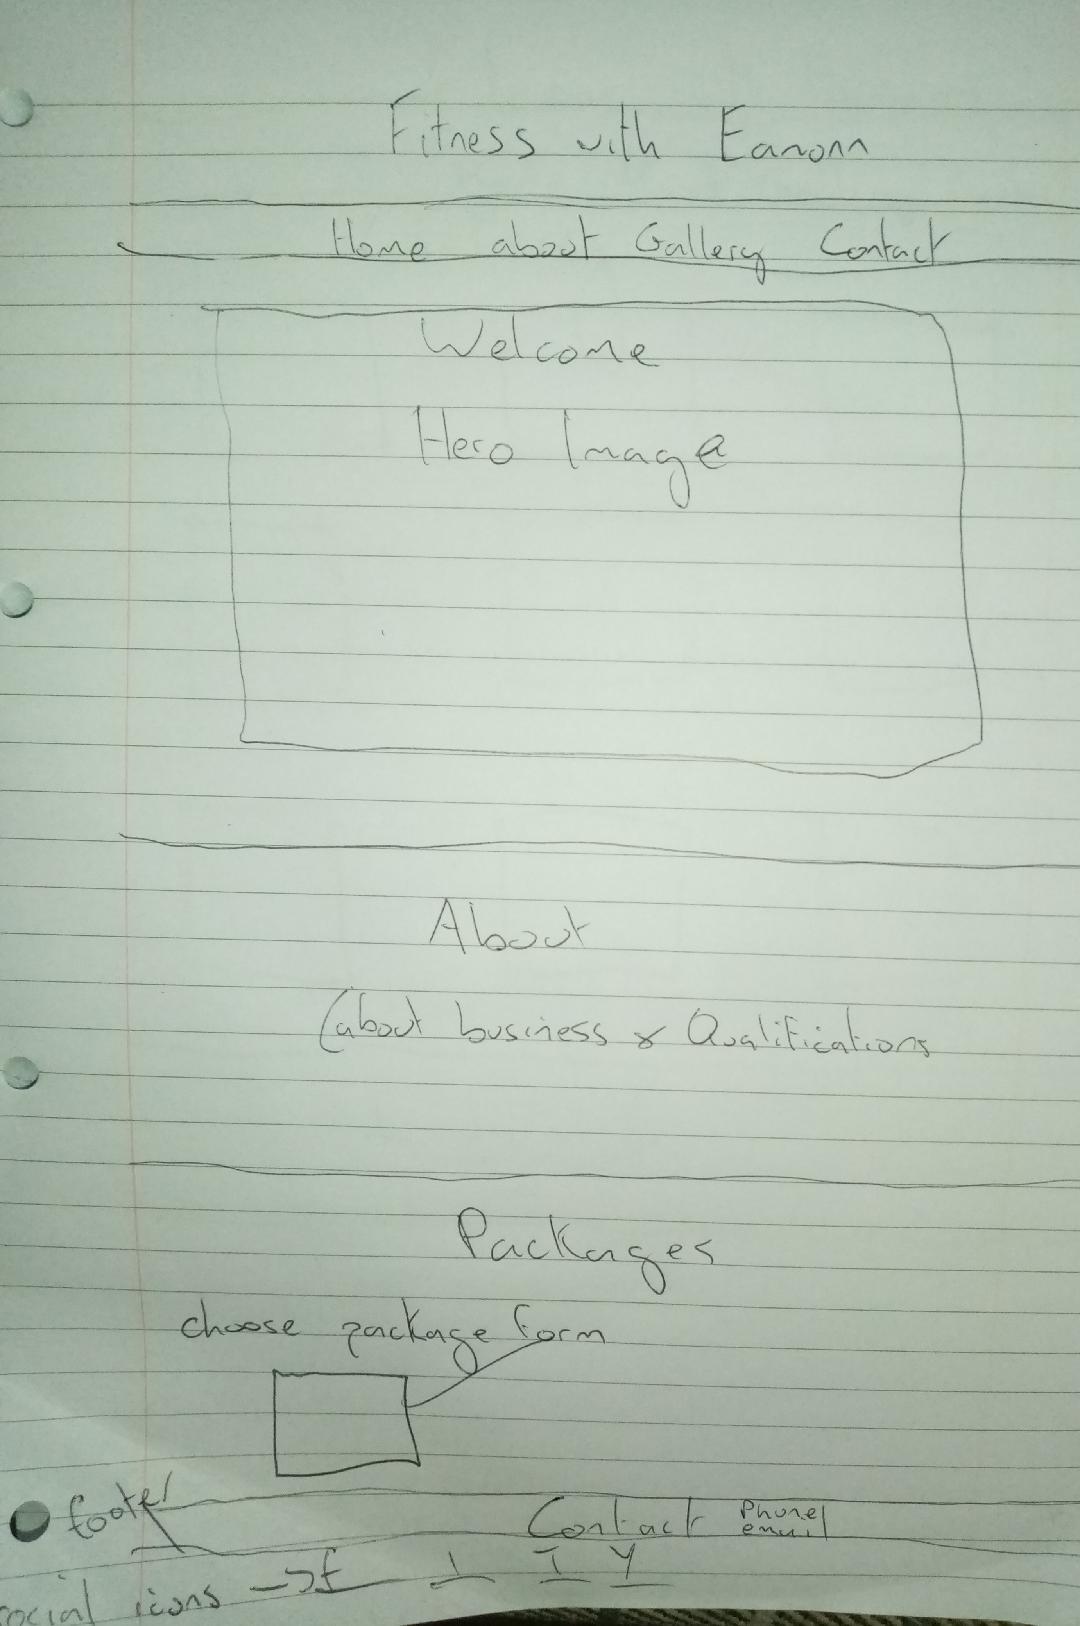 Fitness with Eamonn
Home about Gallery Contact
Welcome
Hero Image
About
(about business & Qualifications
Packages
choose package form
footer
Contact Phone/
email
social icons -> f I T Y